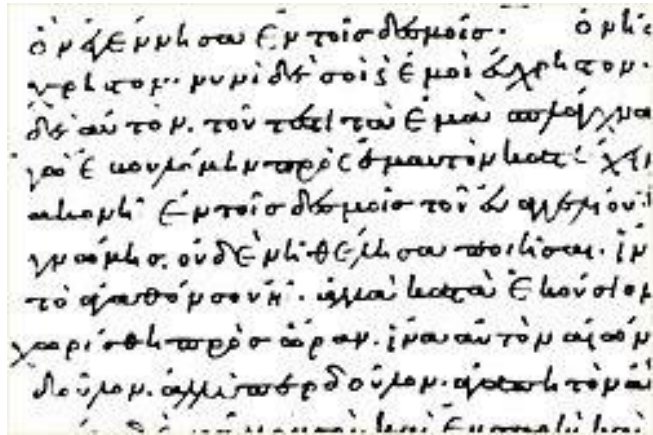 ὃν ἐγέννησα ἐν τοῖς δεσμοῖς· ὀνήσ
χρηστον· νυνὶ δὲ σοὶ καὶ ἐμοὶ εὔχρηστον·
δὲ αὐτὸν. τοῦτέστι τὰ ἐμὰ σπλάγχνα
γὼ ἐβουλόμην πρὸς ἐμαυτὸν κατέχειν
ακονῆ· ἐν τοῖς δεσμοῖς τοῦ εὐαγγελίου·
γνώμης οὐδὲν ἠθέλησα ποιῆσαι. ἵν
τὸ ἀγαθόν σου ᾖ· ἀλλὰ κατὰ ἑκούσιον
χωρίσθη πρὸς ὥραν. ἵνα αὐτὸν αἰών
δοῦλον. ἀλλ' ὑπὲρ δοῦλον. ἀγαπητὸν ἀ